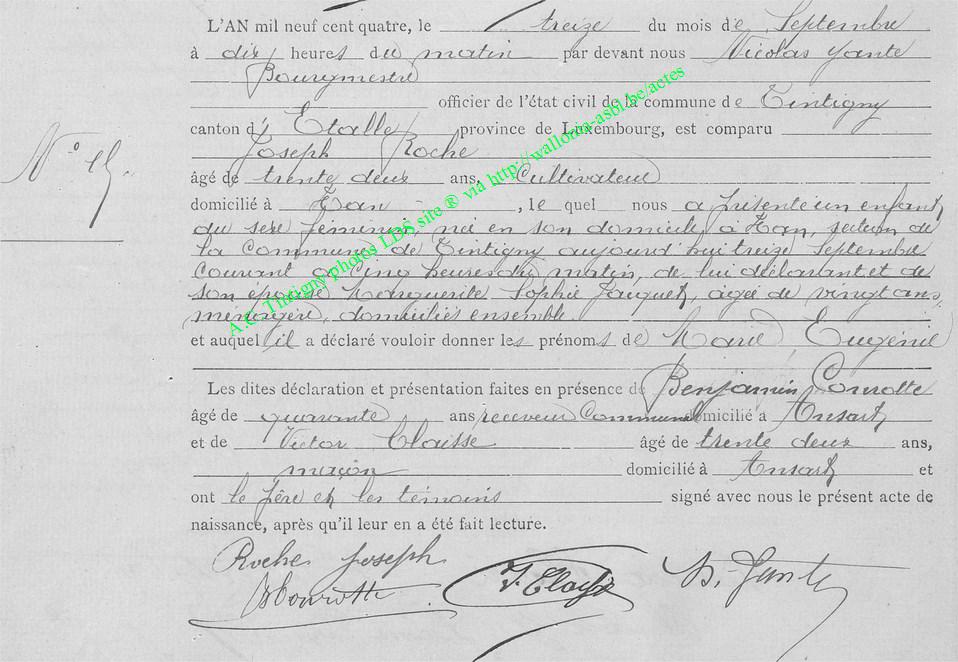 L'AN mil neuf cent quatre, le treize du mois de Septembre
à dix heures du matin par devant nous Nicolas Yante
Bourgmestre
officier de l'état civil de la commune de Tintigny
canton d' Etalle province de Luxembourg, est comparu
Joseph Roche
N°
âgé de trente deux ans, Cultivateur
domicilié à Han, le quel nous a présenté un enfant
du sexe féminin, né en son domicile à Han, section de
la Commune de Tintigny aujourd'hui treize Septembre
courant à cinq heures du matin, de lui déclarant et de
son épouse Marguerite Sophie Jacquet, âgée de vingt ans
ménagère, domiciliés ensemble
et auquel il a déclaré vouloir donner les prénoms de Marie Eugénie
Les dites déclaration et présentation faites en présence de Benjamin Conrotte
âgé de quarante ans receveur Communal domicilié à Ansart
et de Victor Claisse âgé de trente deux ans,
maçon domicilié à Ansart et
ont le père et les témoins signé avec nous le présent acte de
naissance, après qu'il leur en a été fait lecture.
Roche Joseph
BConrotte V. Claisse N. Yante
A.C. Tintigny photos LDS site ® via http://wallonia-asbl.be/actes